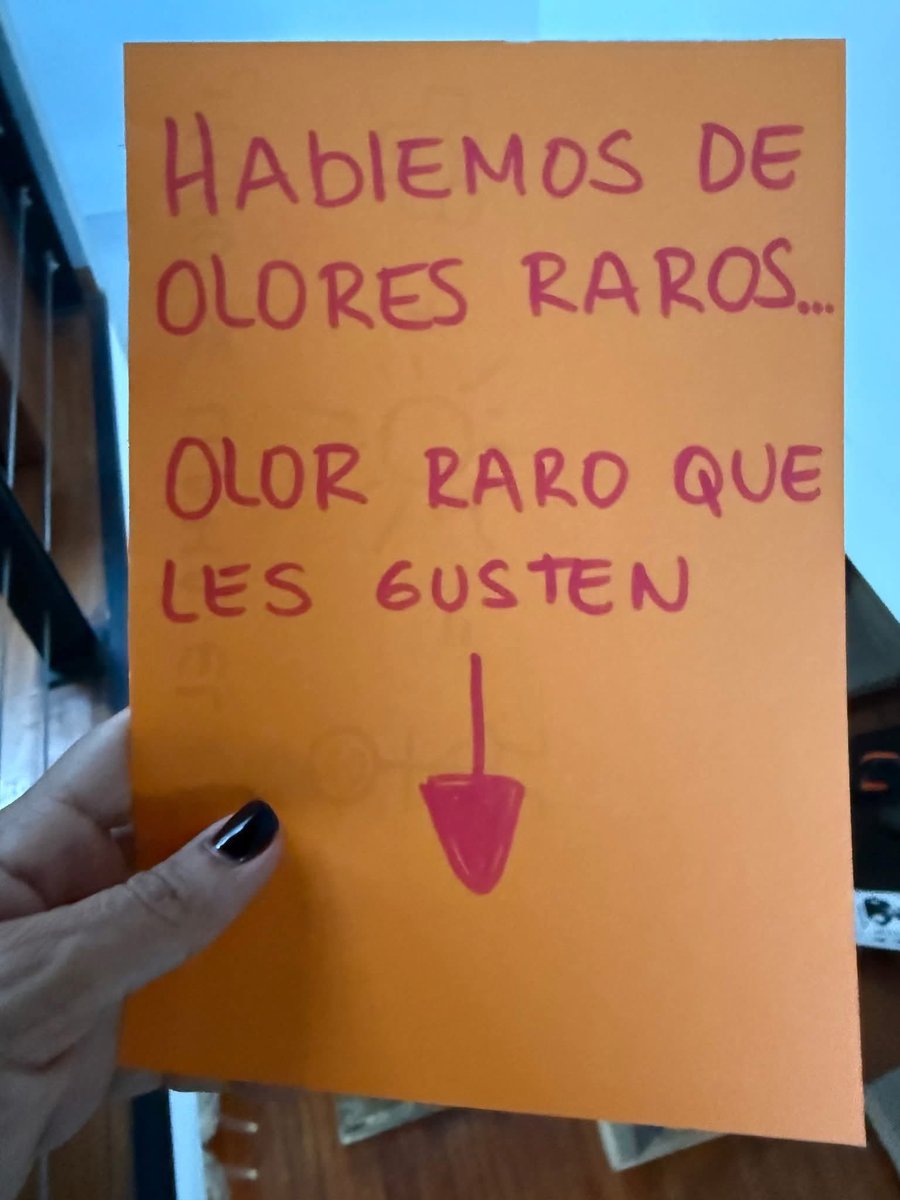 HAblEMOS DE
OLORES RAROS...
OLOR RARO QUE
LES GUSTEN